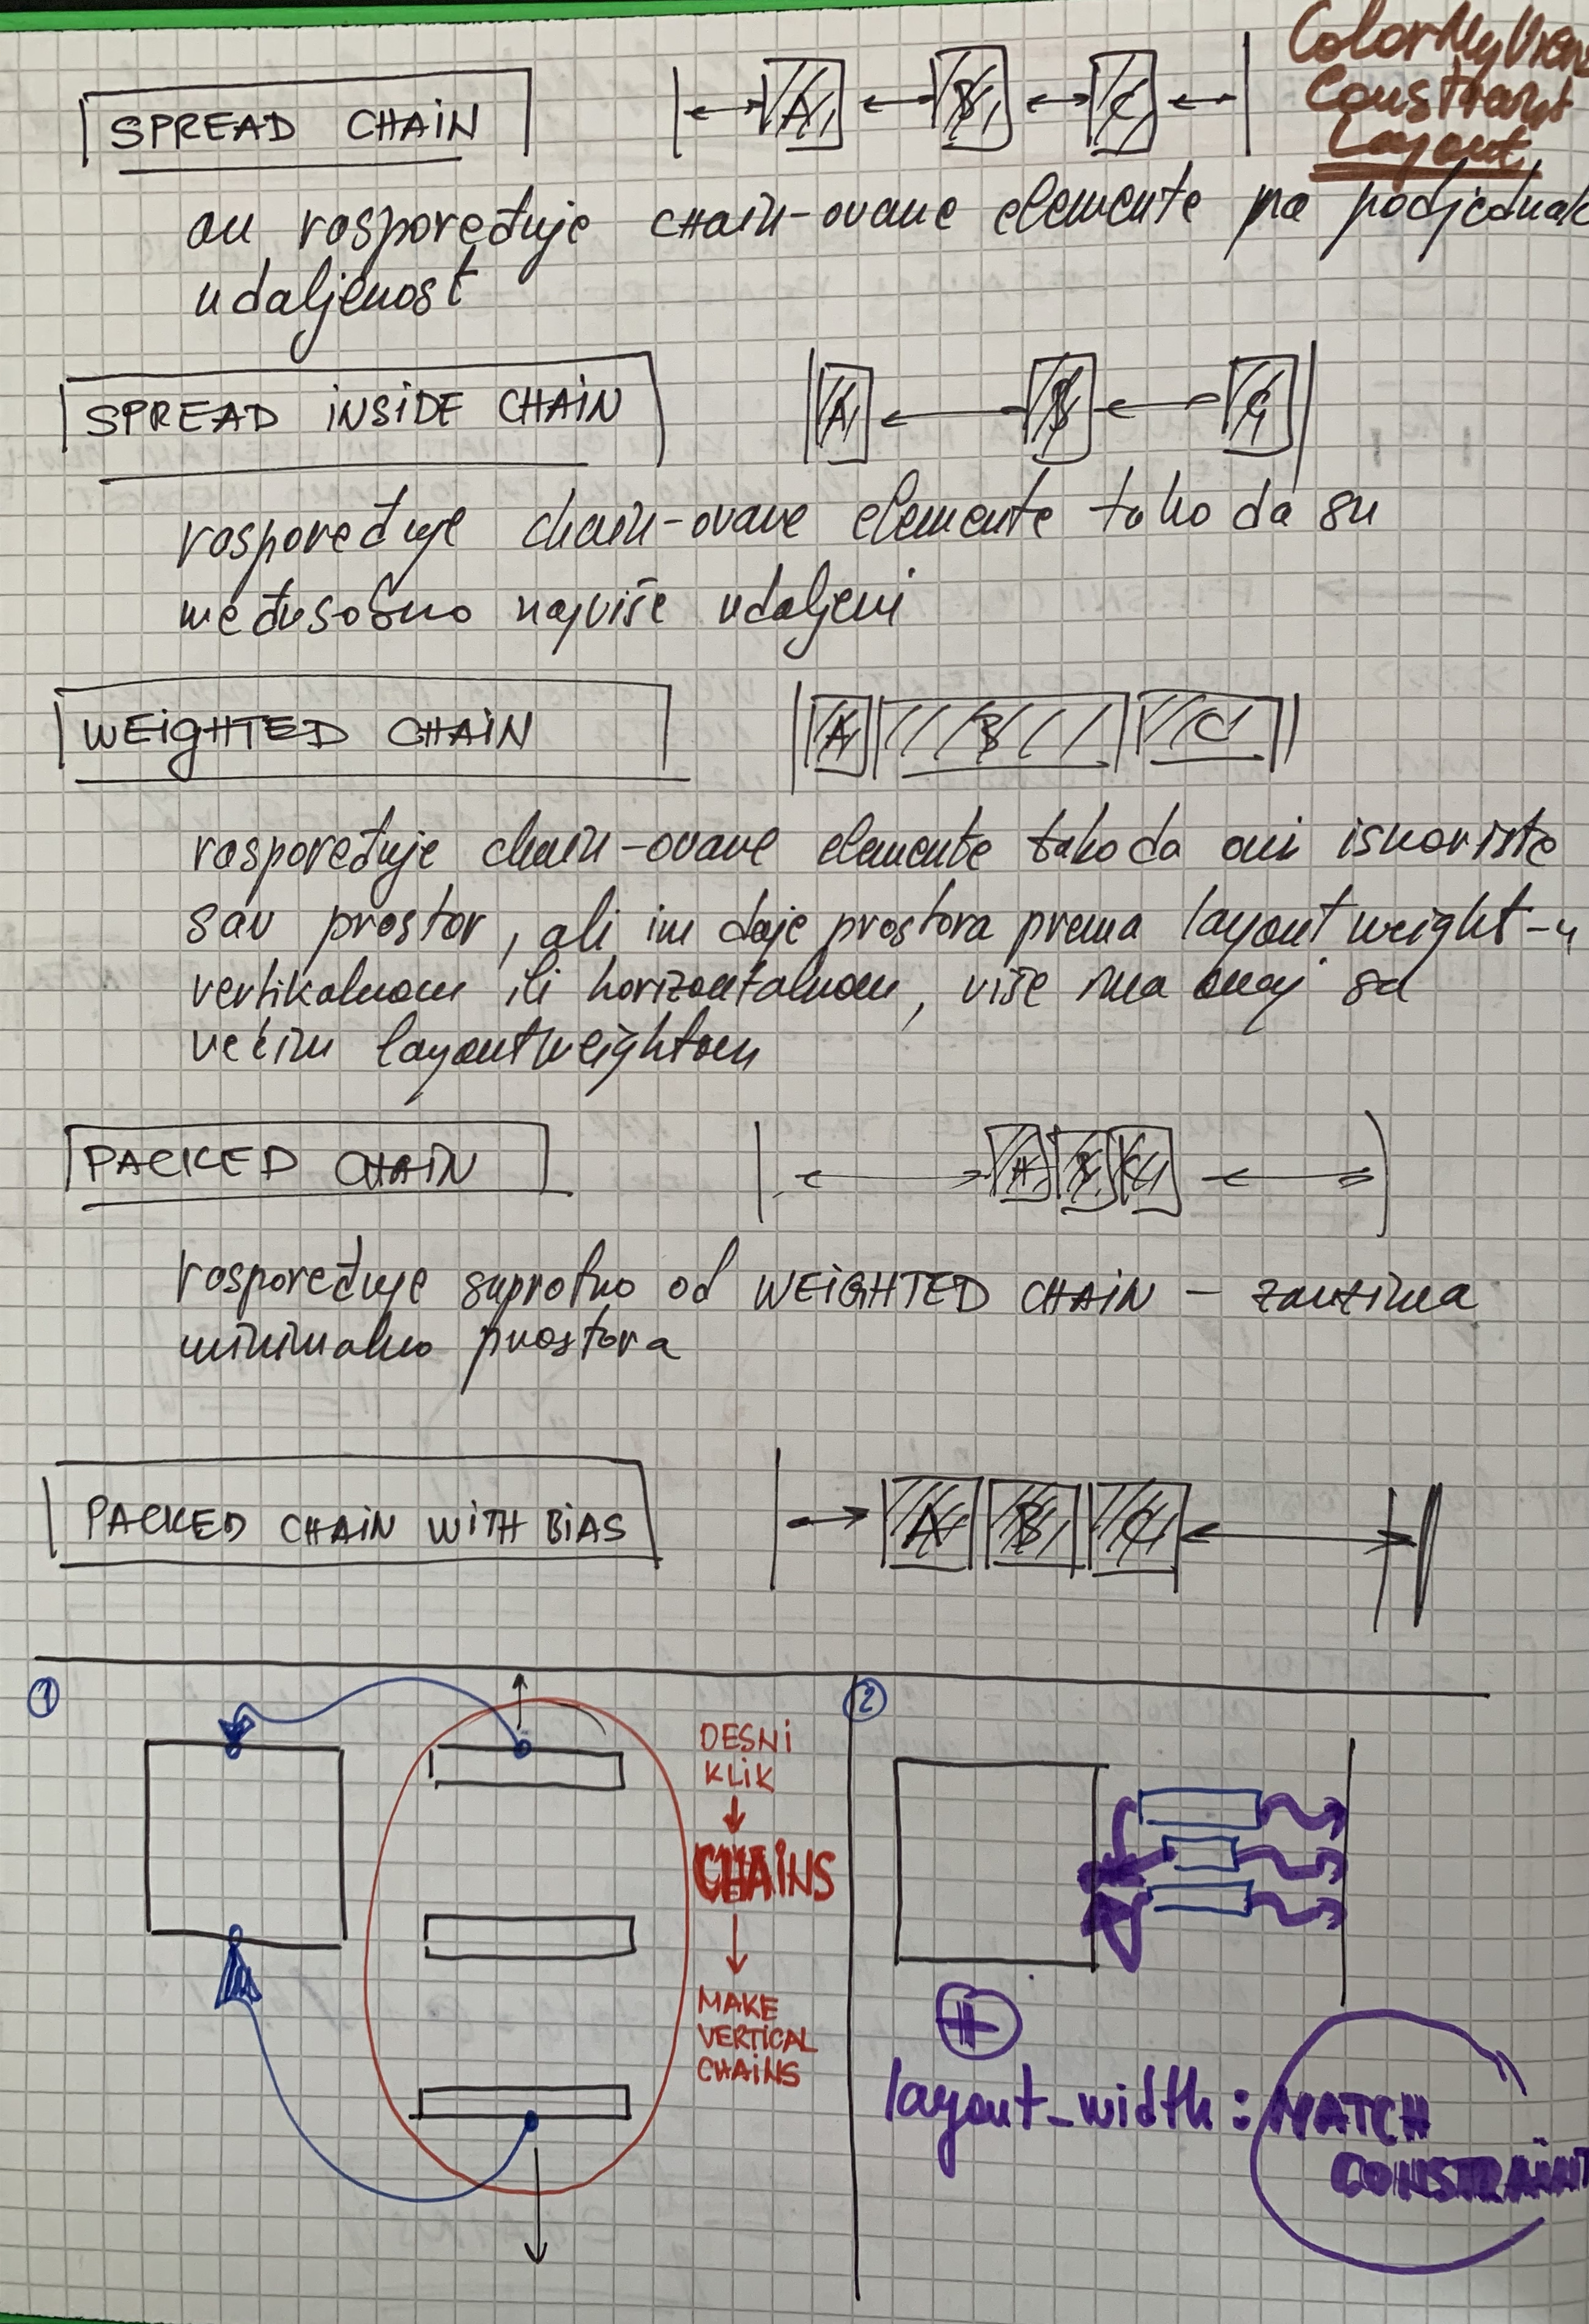 ColorMyView
Constraint
Layout
SPREAD CHAIN
A B C
on raspoređuje chain-ovane elemente na podjednak
udaljenost
SPREAD INSIDE CHAIN
A B C
raspoređuje chain-ovane elemente tako da su
međusobno najviše udaljeni
WEIGHTED CHAIN
A B C
raspoređuje chain-ovane elemente tako da oni iskoriste
sav prostor, ali im daje prostora prema layout weight-u
vertikalnom ili horizontalnom, više ima onaj sa
većim layoutweightom
PACKED CHAIN
A B C
raspoređuje suprotno od WEIGHTED CHAIN - zauzima
minimalno prostora
PACKED CHAIN WITH BIAS
A B C
1
DESNI
KLIK
CHAINS
MAKE
VERTICAL
CHAINS
2
+
layout_width: MATCH
CONSTRAINT